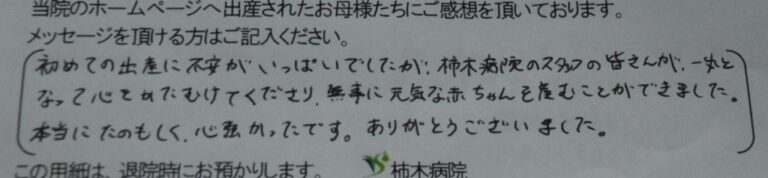 当院のホームページへ出産されたお母様たちにご感想を頂いております。
メッセージを頂ける方はご記入ください。
初めての出産に不安がいっぱいでしたが、柿木病院のスタッフの皆さんが、一丸と
なって心をかたむけてくださり、無事に元気な赤ちゃんを産むことができました。
本当にたのもしく、心強かったです。ありがとうございました。
この用紙は、退院時にお預かりします。 柿木病院